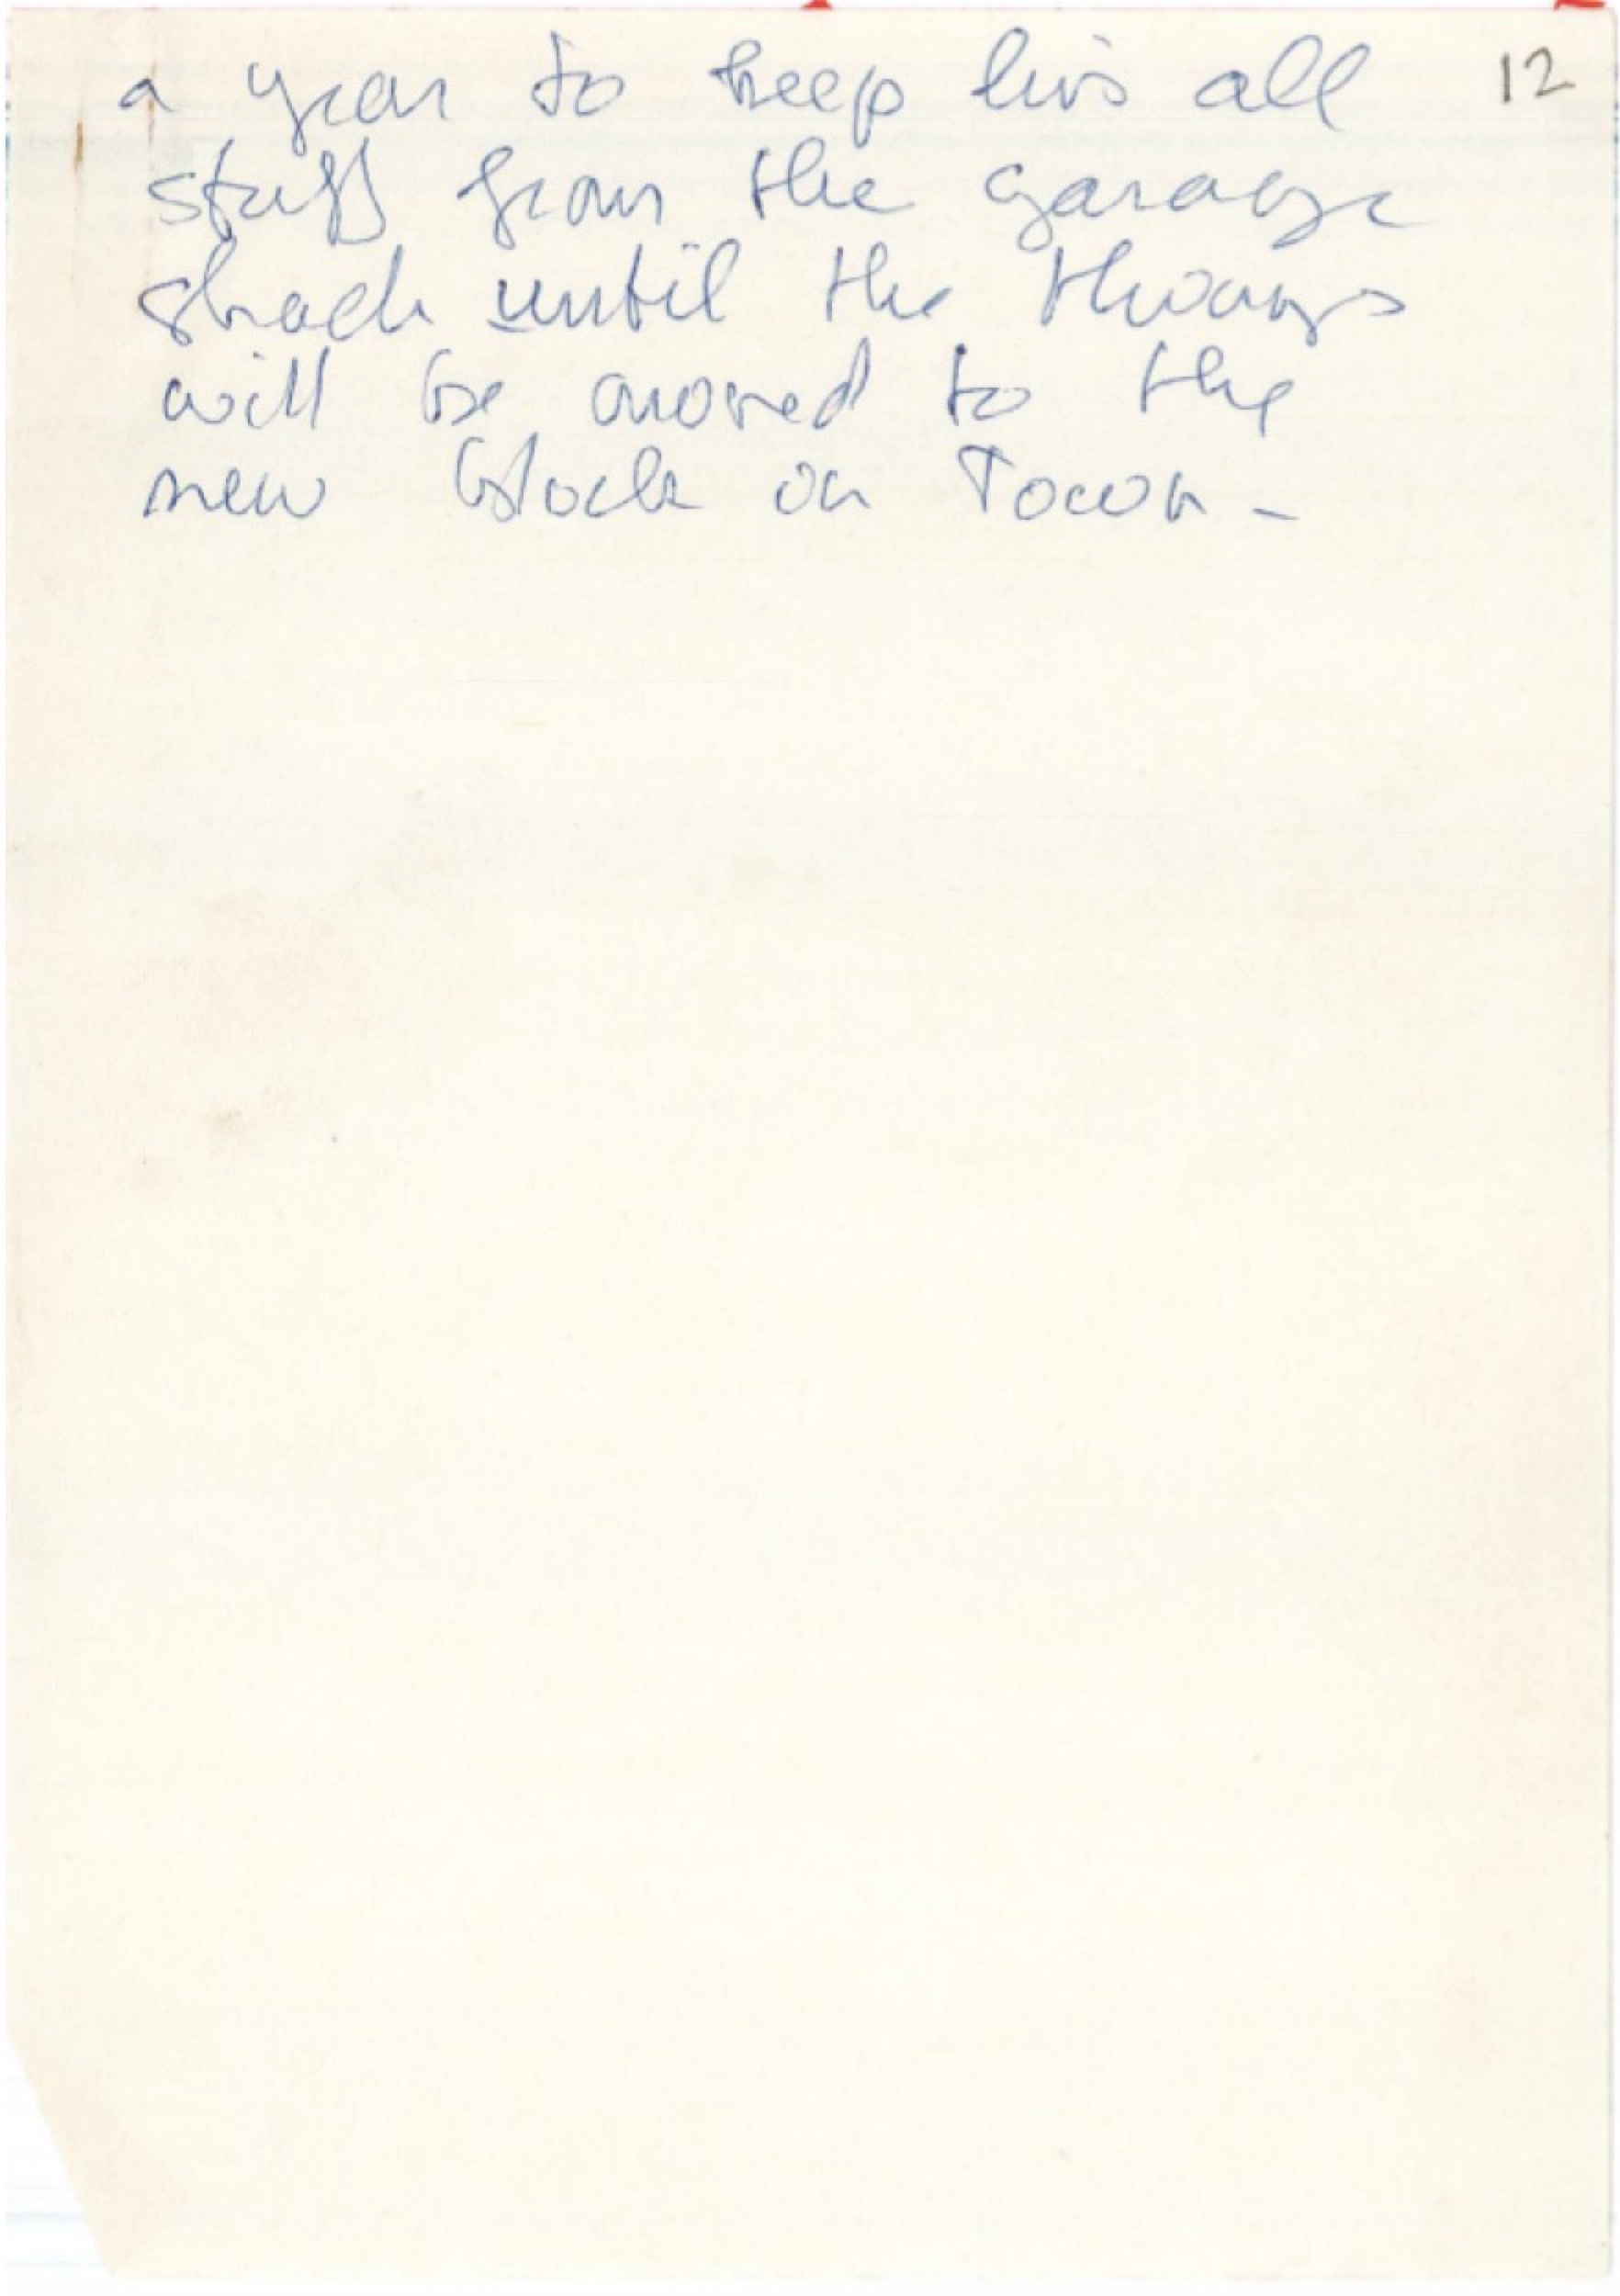 a year to keep his all 12
stuff from the garage
shack until the things
will be moved to the
new block in Town -